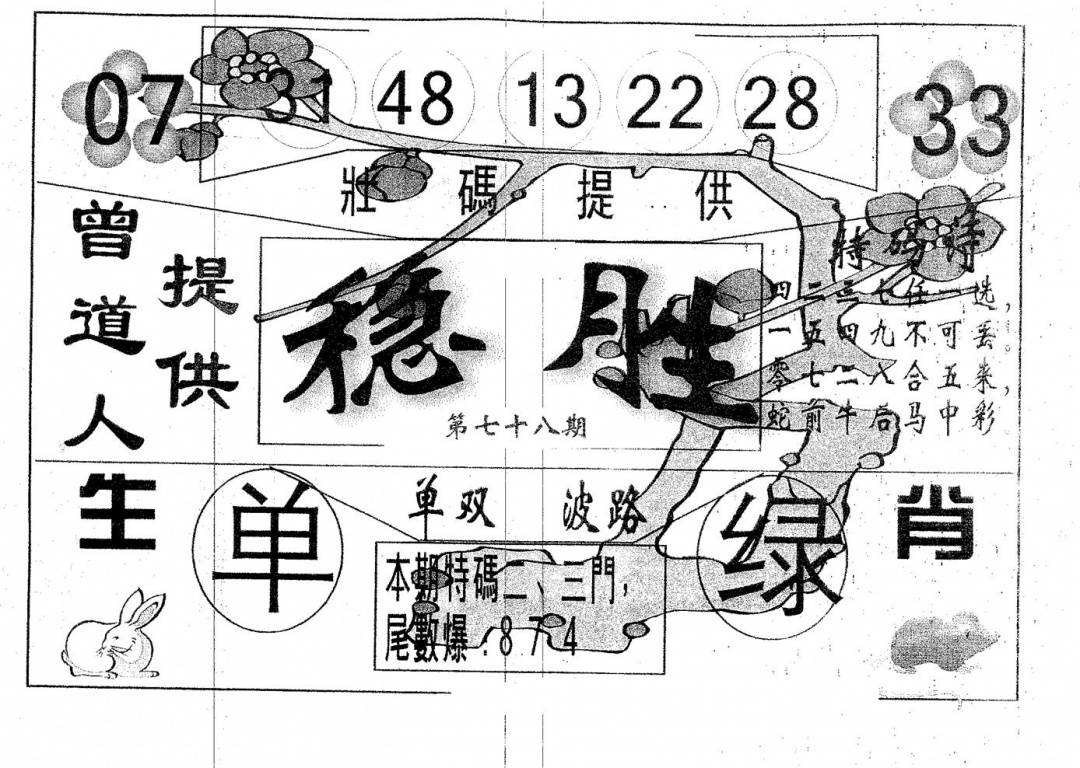 07 31 48 13 22 28 33
壯碼提供
曾道人
提供
稳胜
第七十八期
特码诗
四二三七任一选，
一五四九不可丢。
零七二八合五来，
蛇前牛后马中彩
生肖
单双 波路
单
绿
本期特碼二、三門，
尾數爆:874